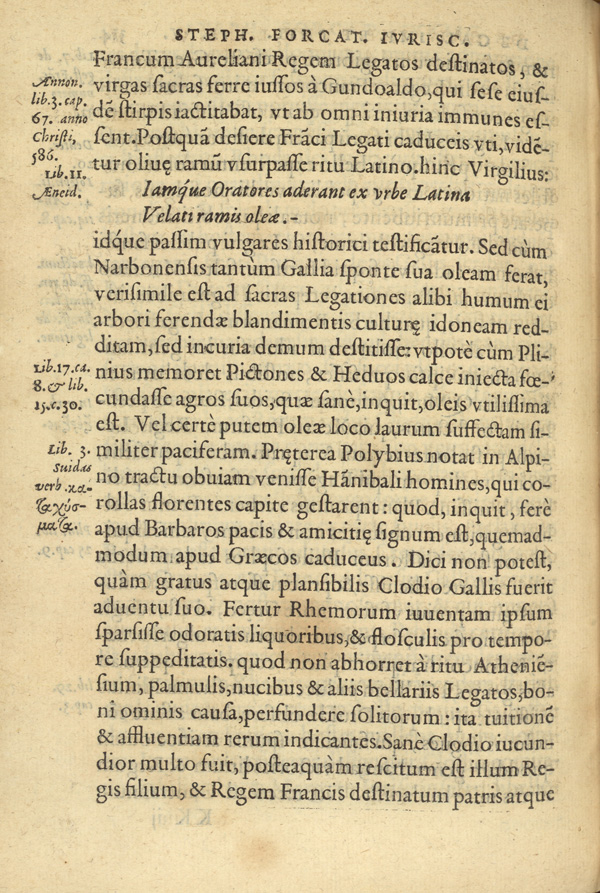 STEPH. FORCAT. IVRISC.
Francum Aureliani Regem Legatos destinatos, &
virgas sacras ferre iussos à Gundoaldo, qui sese eius-
dē stirpis iactitabat, vt ab omni iniuria immunes es-
sent. Postquā desiere Frāci Legati caduceis vti, vidē-
tur oliuę ramū vsurpasse ritu Latino. hinc Virgilius:
Iamq́ue Oratores aderant ex vrbe Latina
Velati ramis oleæ.-
idq́ue passim vulgares historici testificātur. Sed cùm
Narbonensis tantùm Gallia sponte sua oleam ferat,
verisimile est ad sacras Legationes alibi humum ei
arbori ferendæ blandimentis culturę idoneam red-
ditam, sed incuria demum destitisse: vtpotè cùm Pli-
nius memoret Pictones & Heduos calce iniecta fœ-
cundasse agros suos, quæ sanè, inquit, oleis vtilissima
est. Vel certè putem oleæ loco laurum suffectam si-
militer paciferam. Pręterea Polybius notat in Alpi-
no tractu obuiam venisse Hānibali homines, qui co-
rollas florentes capite gestarent: quod, inquit, ferè
apud Barbaros pacis & amicitię signum est, quemad-
modum apud Græcos caduceus. Dici non potest,
quàm gratus atque plansibilis Clodio Gallis fuerit
aduentu suo. Fertur Rhemorum iuuentam ipsum
sparsisse odoratis liquoribus, & flosculis pro tempo-
re suppeditatis. quod non abhorret à ritu Atheniē-
sium, palmulis, nucibus & aliis bellariis Legatos, bo-
ni ominis causa, perfundere solitorum: ita tuitionē
& affluentiam rerum indicantes. Sanè Clodio iucun-
dior multo fuit, posteaquàm rescitum est illum Re-
gis filium, & Regem Francis destinatum patris atque
Annon.
lib. 3. cap.
67. anno
Christi,
586.
Lib. 11.
Æneid.
Lib. 17. ca.
8. & lib.
15. c. 30.
Lib. 3.
Suidas
verb. κα-